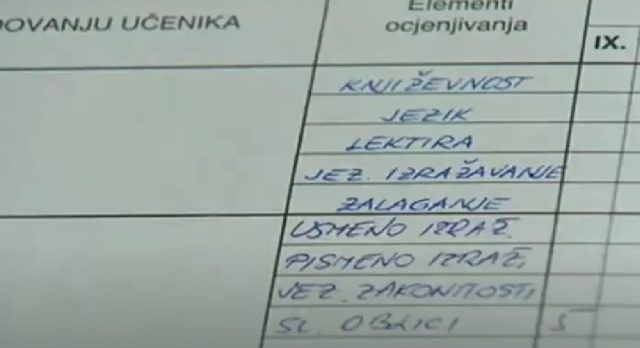 OVANJU UČENIKA
Elementi
ocjenjivanja
IX.
KNJIŽEVNOST
JEZIK
LEKTIRA
JEZ. IZRAŽAVANJE
ZALAGANJE
USMENO IZRAŽ.
PISMENO IZRAŽ.
JEZ. ZAKONITOSTI
SL. OBLICI 5